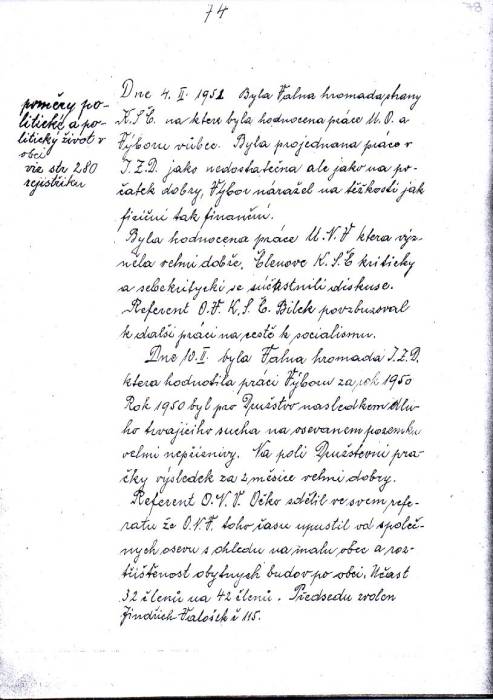 74
78
poměry po-
litické a po-
litický život v
obci
viz str 280
rejistřiku
Dne 4. II. 1951 Byla Valna hromada strany
K.S.Č. na ktere byla hodnocena práce U.O. a
Výboru vůbec. Byla projednana práce v
J.Z.D. jako nedostatečna ale jako na po-
čatek dobry, Výbor nárážel na těžkosti jak
fizični tak finanční.
Byla hodnocena práce M.N.V ktera výz-
něla velmi dobře. Členove K.S.Č kriticky
a sebekrityčki se súčastnili diskuse.
Referent O.V. K.S.Č. Bilek povzbuzoval
k další práci na cestě k socialismu.
Dne 10. II. byla Valna hromada J.Z.D.
ktera hodnotila práci Výboru za rok 1950
Rok 1950 byl pro Družstvo nasledkem dlu-
ho trvajiciho sucha na osevanem pozemku
velmi nepřiznivy. Na poli Družstevni pra-
čky výsledek za 2 měsice velmi dobry.
Referent O.N.V. Očko sdělil ve svem refe-
ratu že O.N.V. toho času upustil od společ-
nych osevu s ohledu na malu obec a roz-
tříštěnost obytnych budov po obci. Učast
32 členů na 42 členů. Předsedu zvolen
Jindřich Valošek č 115.